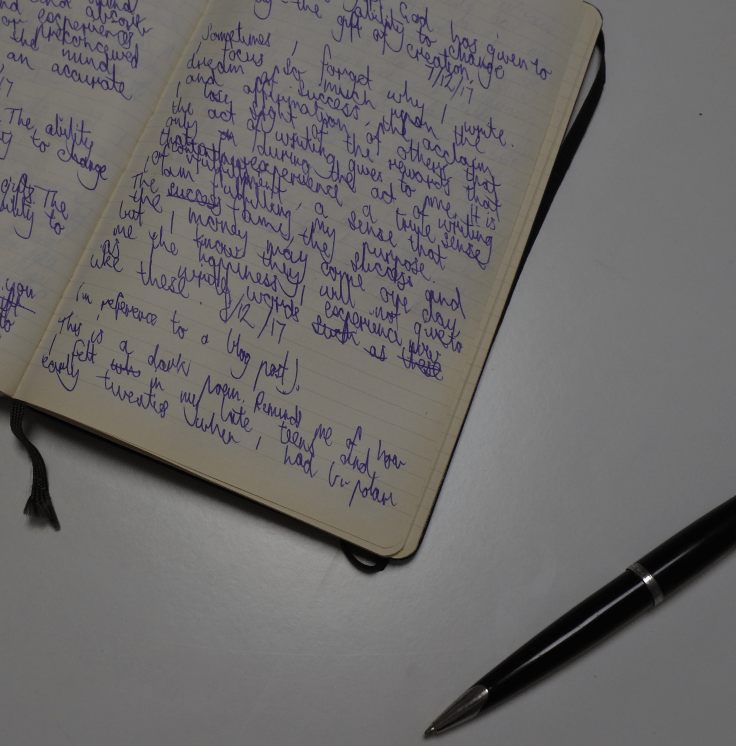 and absorb
and experiences
or preconceived
the mundane
an accurate
The ability
to change
gifts. The
ability to
you
to
God has given to
ability to change
the gift of creation.
7/12/17
Sometimes I forget why I write.
I focus so much upon the
dream of success, the acclaim
and affirmation of others that
I lose sight of the rewards that
the act of writing gives to me. It is
only on during the act of writing
experience a true sense
of fulfillment, a sense that
I am fulfilling my purpose.
The success fame, the success and
the money may come one day
but I know they will not give to
me the happiness I experience now
as I write words such as these
like these. 8/12/17
(in reference to a blog post).
This is a dark poem. Reminds me of how
I felt was in my late teens and
early twenties when I had bi-polar